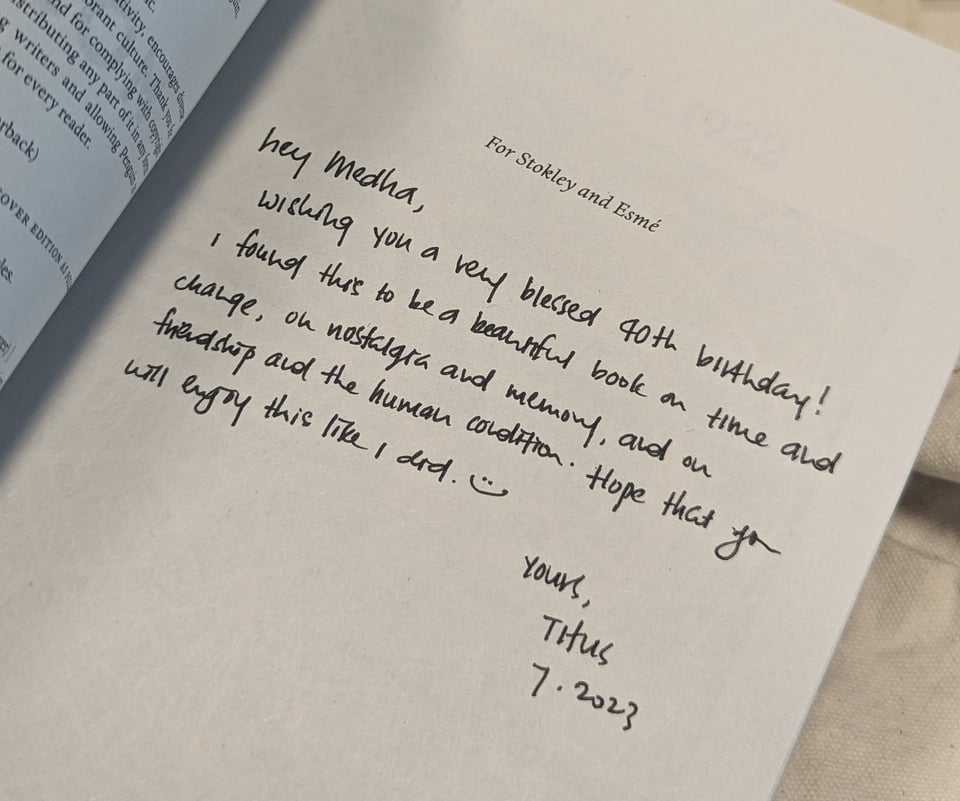 tivity, encourages diverse
orant culture. Thank you
nd for complying with copyrigh
stributing any part of it in any for
writers and allowing Penguin
for every reader.
rback)
OVER EDITION AS FO
les.
For Stokley and Esmé
hey Medha,
wishing you a very blessed 40th birthday!
I found this to be a beautiful book on time and
change, on nostalgia and memory, and on
friendship and the human condition. Hope that you
will enjoy this like I did. :)
Yours,
Titus
7.2023